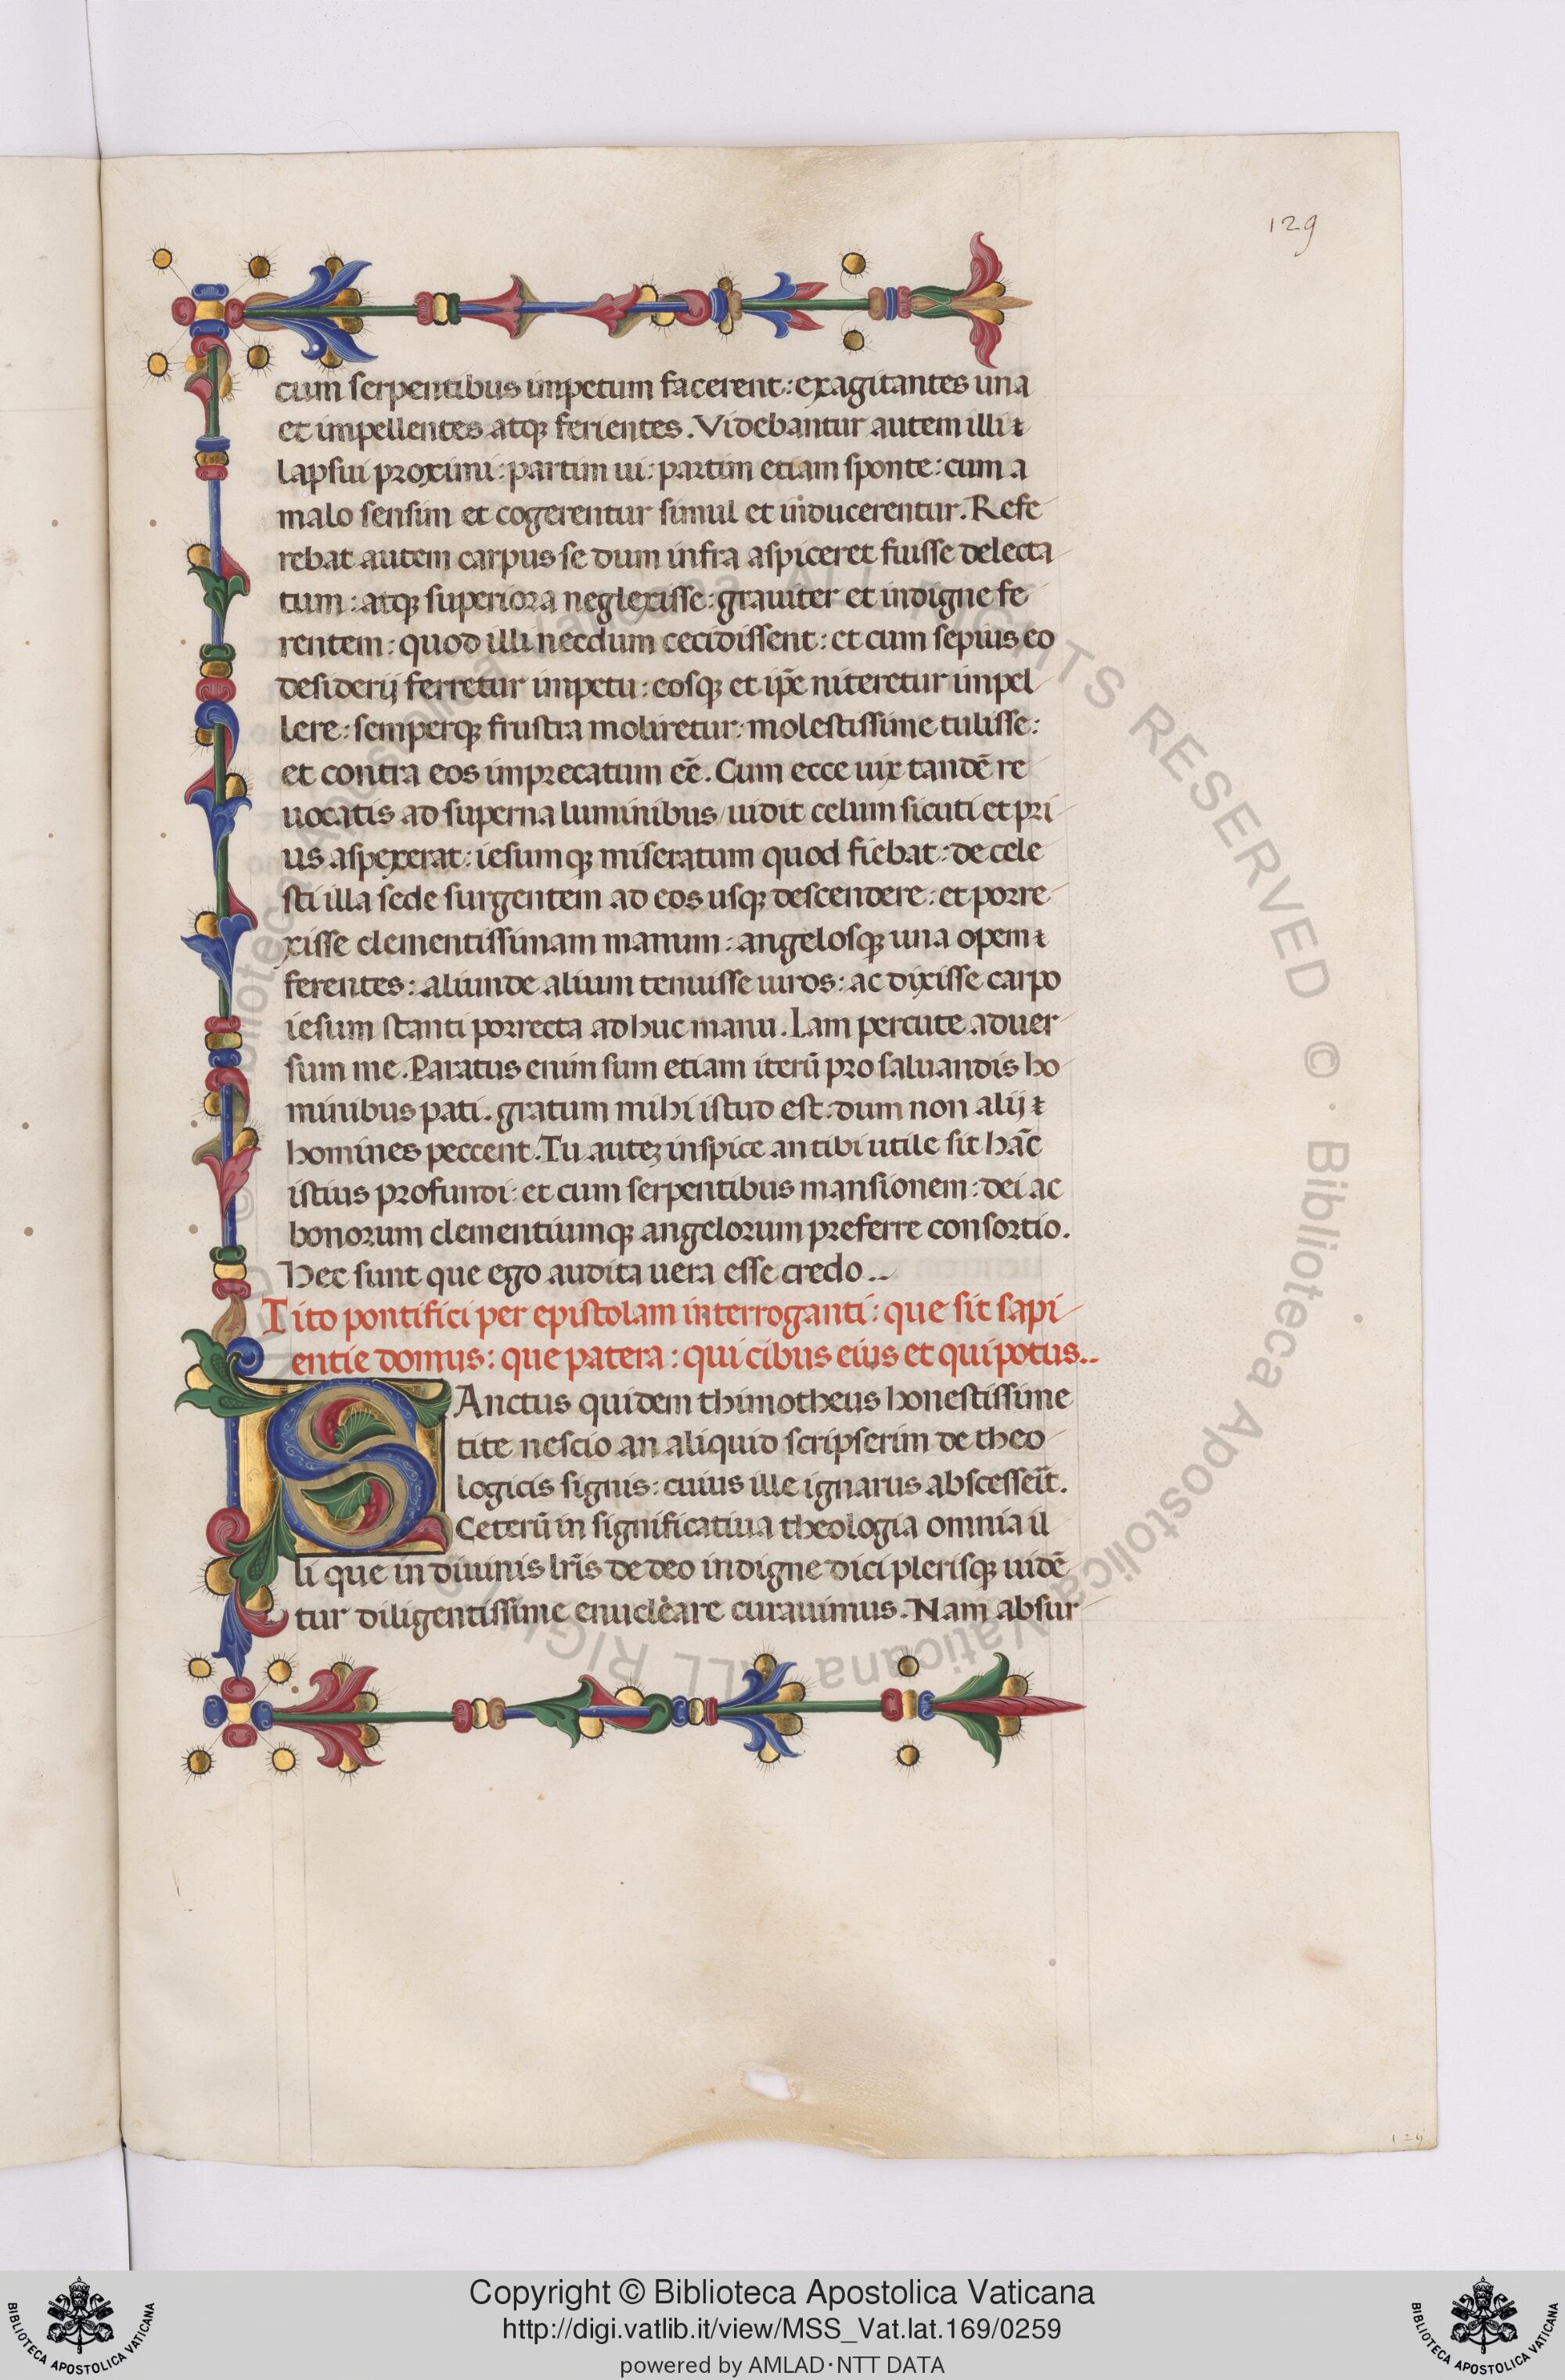 129
cum serpentibus impetum facerent: exagitantes una
et impellentes atqꝫ ferientes. Videbantur autem illi
lapsui proximi: partim ui: partim etiam sponte: cum a
malo sensim et cogerentur simul et inducerentur. Refe
rebat autem carpus se dum infra aspiceret fuisse delecta
tum: atqꝫ superiora neglexisse: grauiter et indigne fe
rentem: quod illi necdum cecidissent: et cum sepius eo
desiderij ferretur impetu: eosqꝫ et ip̄e niteretur impel
lere: semperqꝫ frustra moliretur: molestissime tulisse:
et contra eos imprecatum eē. Cum ecce uix tandē re
uocatis ad superna luminibus / uidit celum sicuti et pri
us aspexerat: iesumqꝫ miseratum quod fiebat: de cele
sti illa sede surgentem ad eos usqꝫ descendere: et porre
xisse clementissimam manum: angelosqꝫ una opem
ferentes: aliunde alium tenuisse uiros: ac dixisse carpo
iesum stanti porrecta adhuc manu. Iam percute aduer
sum me. Paratus enim sum etiam iterū pro saluandis ho
minibus pati. gratum mihi istud est: dum non alij
homines peccent. Tu auteꝫ inspice an tibi utile sit hāc
istius profundi: et cum serpentibus mansionem: dei ac
bonorum clementiumqꝫ angelorum preferre consortio.
Hec sunt que ego audita uera esse credo..
Tito pontifici per epistolam interroganti: que sit sapi
entie domus: que patera: qui cibus eius et qui potus..
SAnctus quidem thimotheus honestissime
tite nescio an aliquid scripserim de theo
logicis signis: cuius ille ignarus abscesseīt.
Ceterū in significatiua theologia omnia il
li que in diuinis lr̄is de deo indigne dici plerisqꝫ uidē
tur diligentissime enucleare curauimus. Nam absur
129
Copyright © Biblioteca Apostolica Vaticana
http://digi.vatlib.it/view/MSS_Vat.lat.169/0259
powered by AMLAD·NTT DATA
BIBLIOTECA APOSTOLICA VATICANA
BIBLIOTECA APOSTOLICA VATICANA